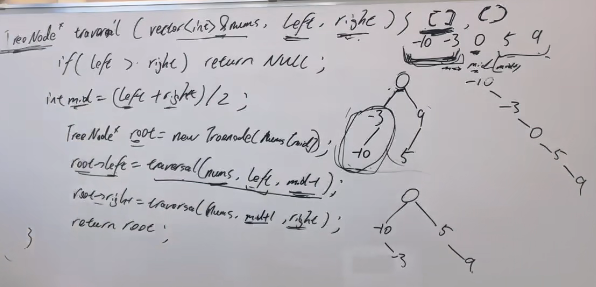 TreeNode* traversal (vector<int>&nums, left, right) { [ ], [ )
-10 -3 0 5 9
if (left > right) return NULL;
mid
int mid = (left + right) / 2;
TreeNode* root = new Treenode(nums[mid]);
root->left = traversal(nums, left, mid-1);
root->right = traversal(nums, mid+1, right);
return root;
}
-3 9
-10 5
-10
-3
0
5
9
-10 5
-3 9